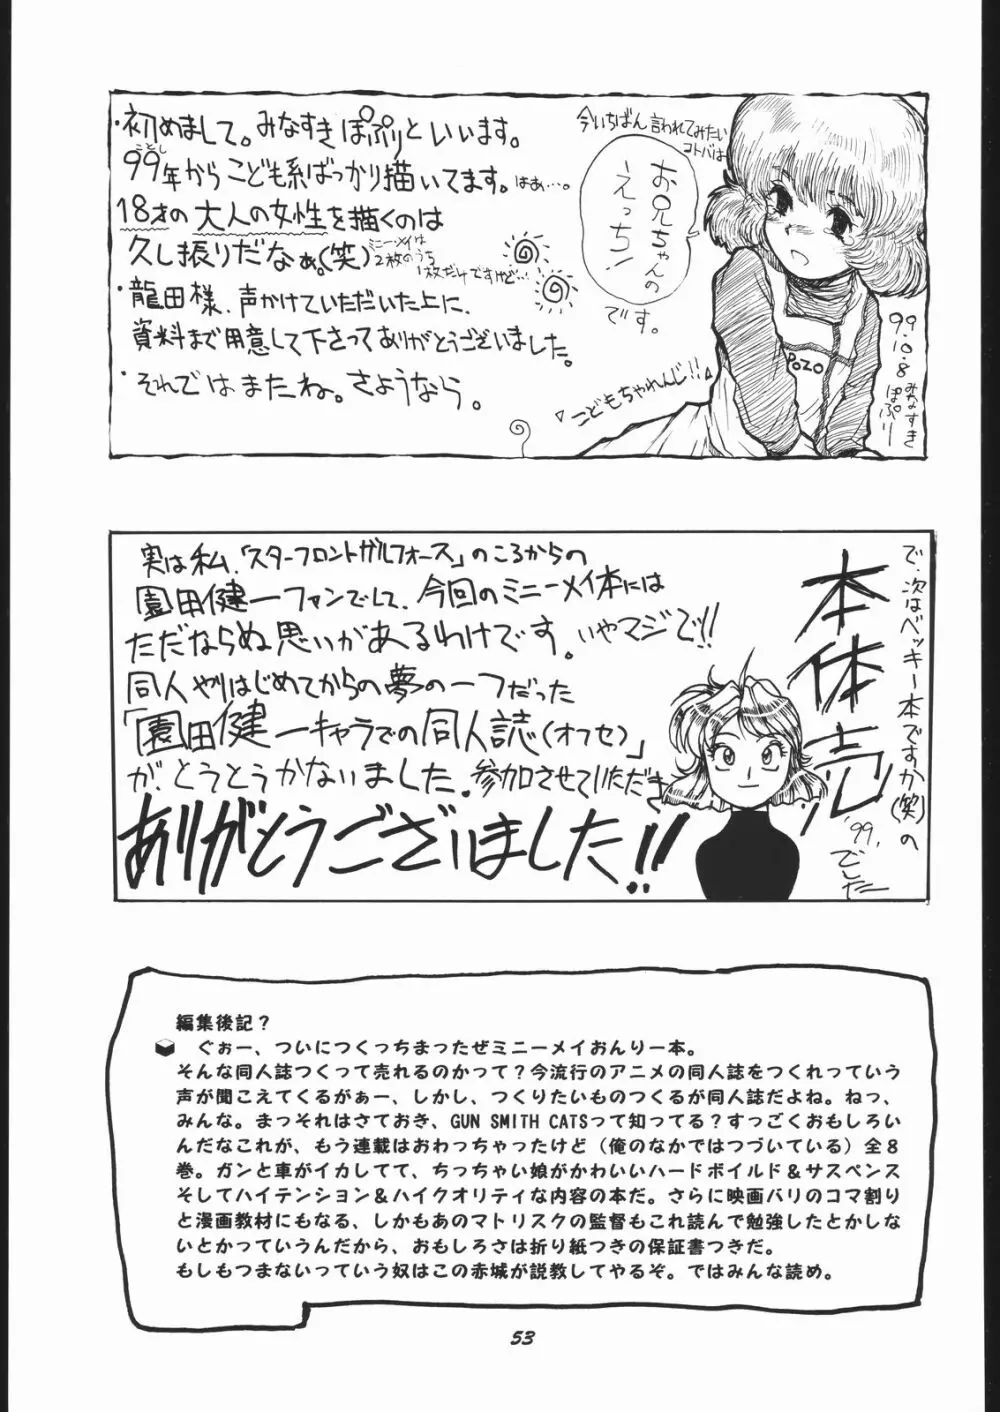 ・初めまして。みなすきぽぷりといいます。
99年からこども系ばっかり描いてます。はあ…。
ことし
18才の大人の女性を描くのは
久し振りだなぁ。(笑)
ミニーメイは
2枚のうち
1枚だけですけど…!
・龍田様、声かけていただいた上に、
資料まで用意して下さってありがとうございました。
・それではまたね。さようなら。
今いちばん言われてみたい
コトバは
お兄ちゃんの
えっち!
です。
こどもちゃれんじ!!
POZO
99.10.8 みなすき
ぽぷり
実は私、「スターフロントガルフォース」のころからの
園田健一ファンでして、今回のミニーメイ本には
ただならぬ思いがあるわけです。いやマジで!!
同人やりはじめてからの夢の一つだった
「園田健一キャラでの同人誌(オフセ)」
が、とうとうかないました。参加させていただき
ありがとうございました!!
で、次はベッキー本ですか(笑)の
本体売
'99,
でした
編集後記?
ぐぉー、ついにつくっちまったぜミニーメイおんりー本。
そんな同人誌つくって売れるのかって?今流行のアニメの同人誌をつくれっていう
声が聞こえてくるがぁー、しかし、つくりたいものつくるが同人誌だよね。ねっ、
みんな。まっそれはさておき、GUN SMITH CATSって知ってる?すっごくおもしろい
んだなこれが、もう連載はおわっちゃったけど(俺のなかではつづいている)全8
巻。ガンと車がイカしてて、ちっちゃい娘がかわいいハードボイルド&サスペンス
そしてハイテンション&ハイクオリティな内容の本だ。さらに映画バリのコマ割り
と漫画教材にもなる、しかもあのマトリスクの監督もこれ読んで勉強したとかしな
いとかっていうんだから、おもしろさは折り紙つきの保証書つきだ。
もしもつまないっていう奴はこの赤城が説教してやるぞ。ではみんな読め。
53